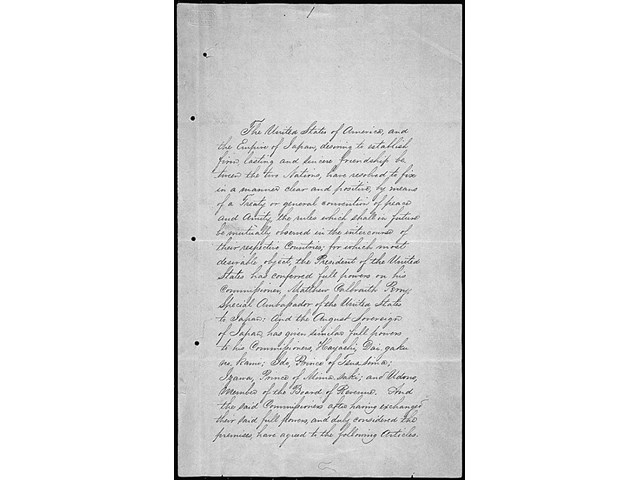 The United States of America, and
the Empire of Japan, desiring to establish
firm, lasting and sincere friendship be
tween the two Nations, have resolved to fix
in a manner clear and positive, by means
of a Treaty or general convention of peace
and Amity, the rules which shall in future
be mutually observed in the intercourse of
their respective Countries; for which most
desirable object, the President of the United
States has conferred full powers on his
Commissioner, Matthew Calbraith Perry,
Special Ambassador of the United States
to Japan: And the August Sovereign
of Japan, has given similar full powers
to his Commissioners, Hayashi, Dai-gaku
no-kami; Ido, Prince of Tsus-Sima;
Izawa, Prince of Mima-saki; and Udono,
Member of the Board of Revenue. And
the said Commissioners after having exchanged
their said full powers, and duly considered the
premises, have agreed to the following Articles.